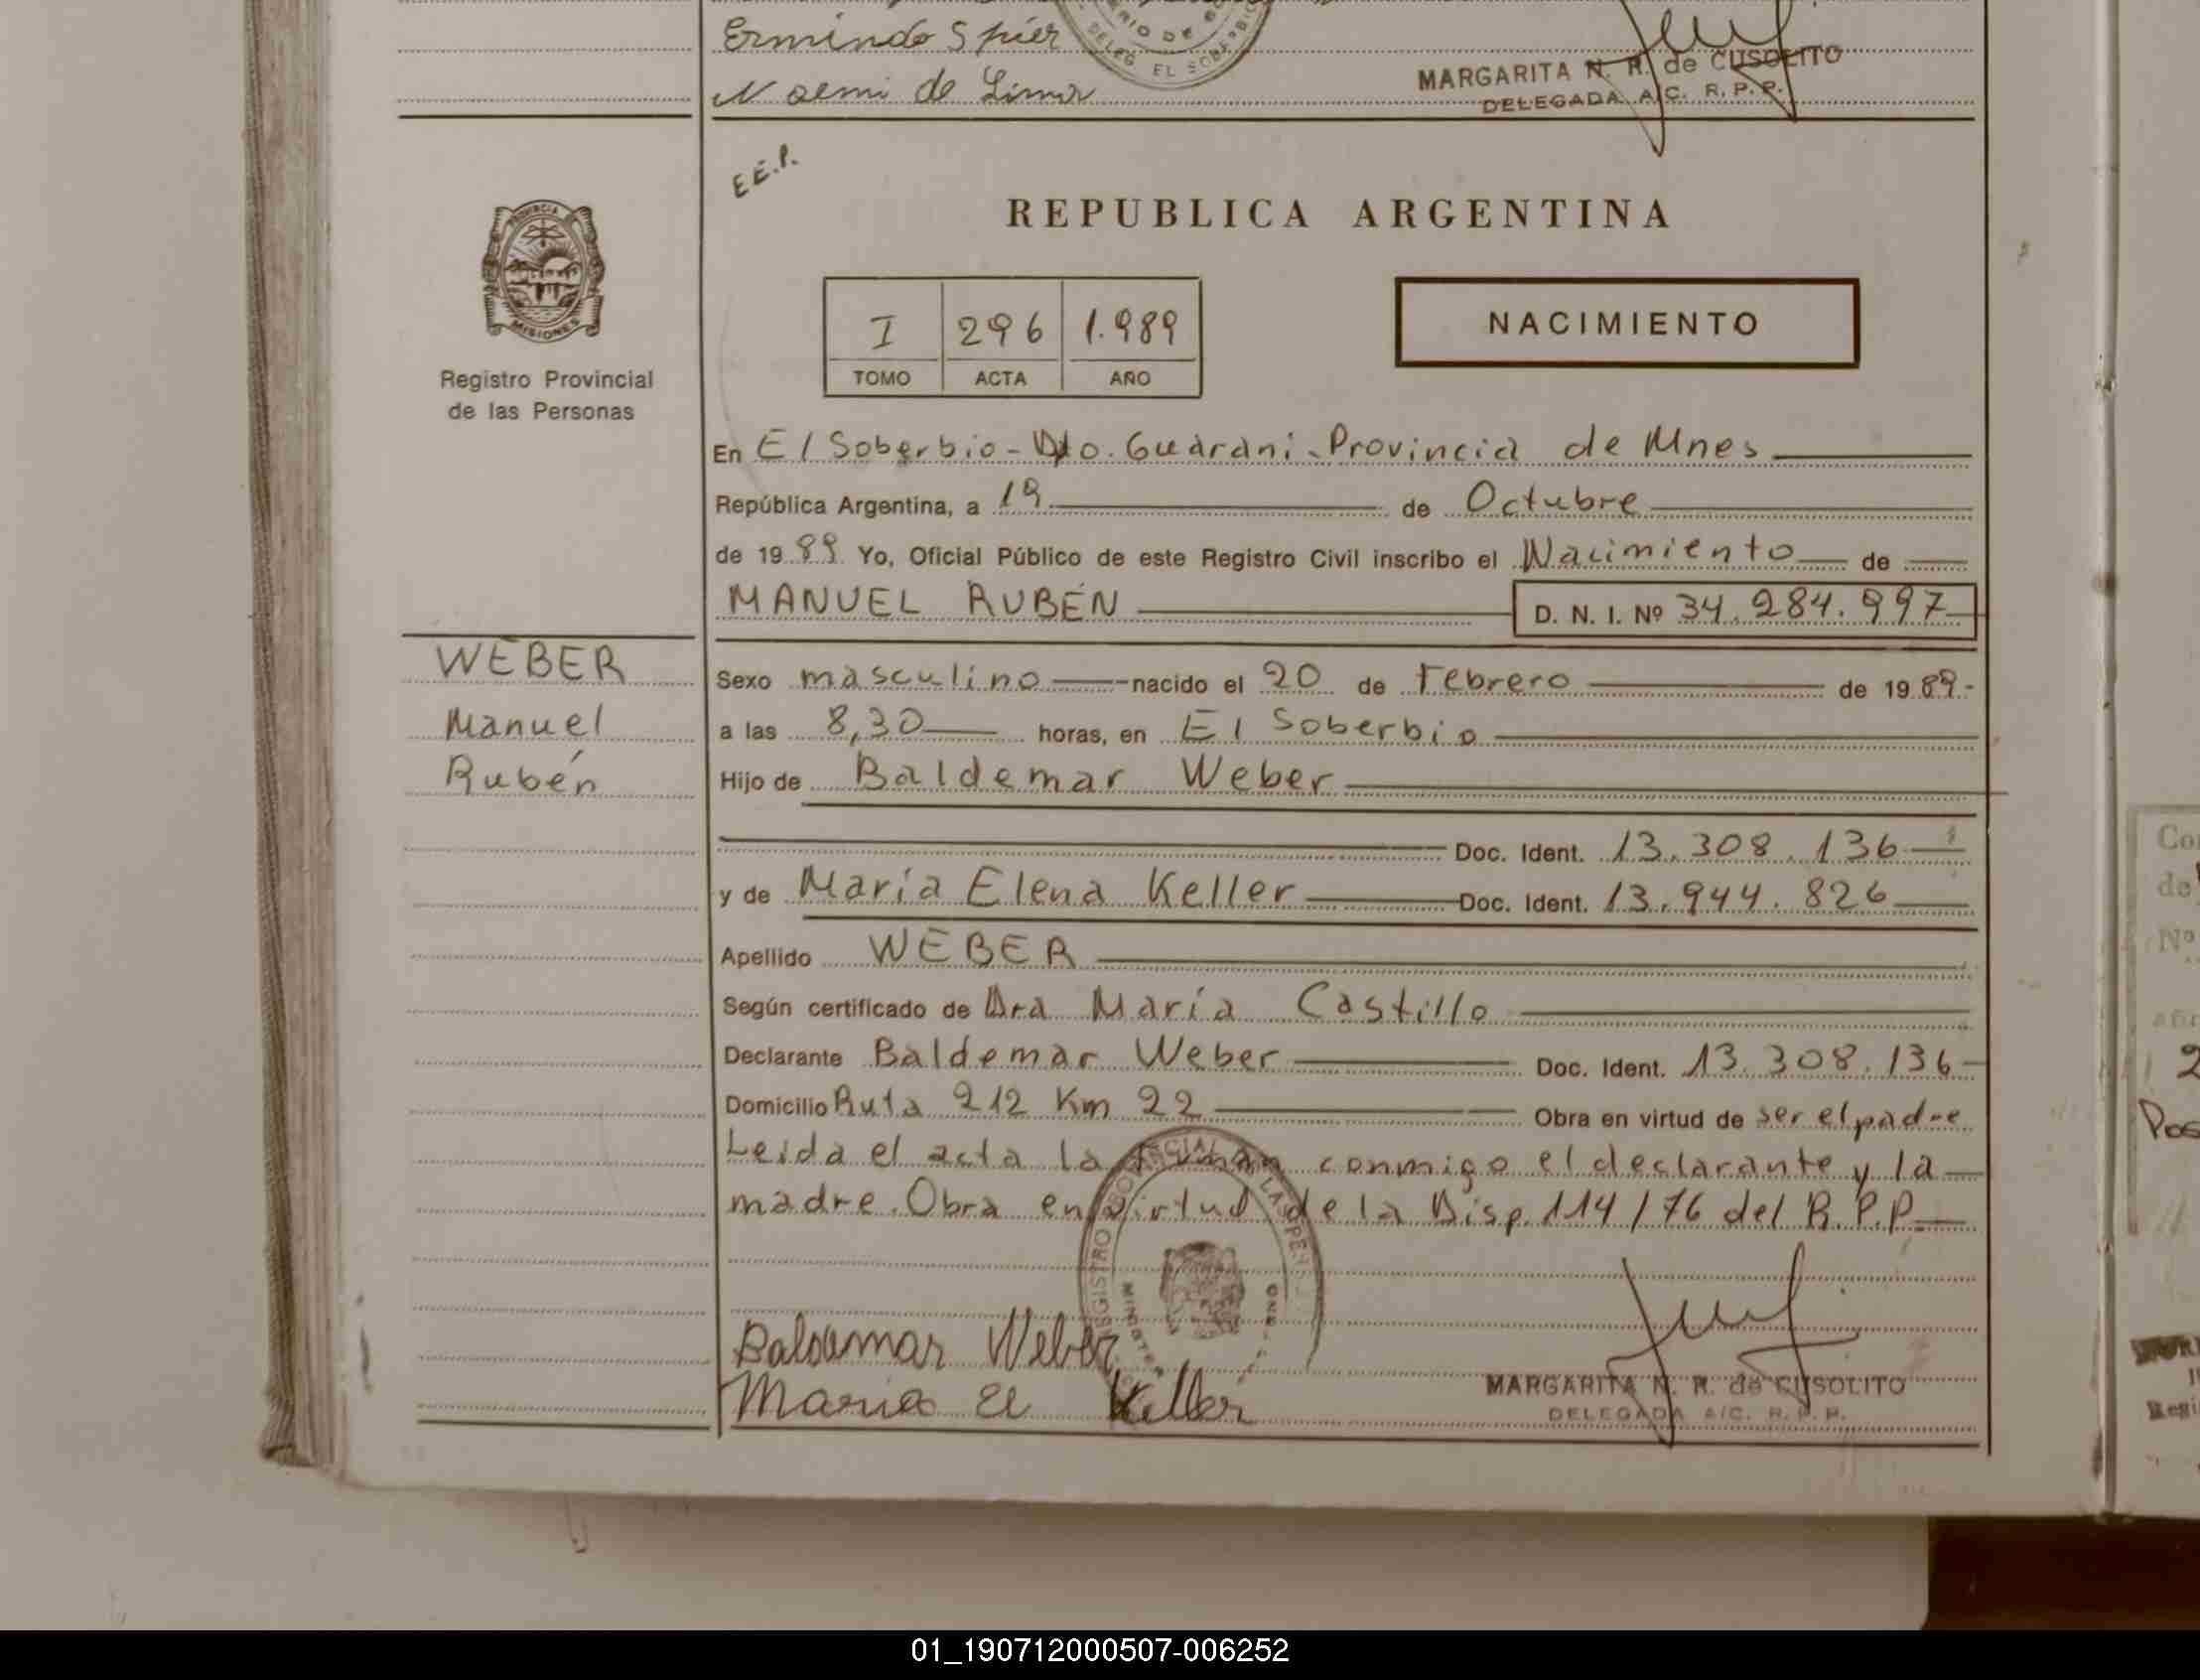 Ermindo Spier
Noemi de Lima
DELEG. EL SOBERBIO
MARGARITA N. R. de CUSOLITO
DELEGADA A/C. R. P. P.
E.E.P.
PROVINCIA
MISIONES
Registro Provincial
de las Personas
REPUBLICA ARGENTINA
I 296 1.989
TOMO ACTA AÑO
NACIMIENTO
En El Soberbio - Dto. Guarani - Provincia de Mnes
República Argentina, a 19 de Octubre
de 19 89 Yo, Oficial Público de este Registro Civil inscribo el Nacimiento de
MANUEL RUBÉN D. N. I. Nº 34.284.997
WEBER
Manuel
Rubén
Sexo masculino nacido el 20 de Febrero de 19 89.-
a las 8,30 horas, en El Soberbio
Hijo de Baldemar Weber
Doc. Ident. 13.308.136
y de María Elena Keller Doc. Ident. 13.944.826
Apellido WEBER
Según certificado de Dra María Castillo
Declarante Baldemar Weber Doc. Ident. 13.308.136
Domicilio Ruta 212 Km 22 Obra en virtud de ser el padre
Leida el acta la firman conmigo el declarante y la
madre. Obra en virtud de la Disp. 114/76 del R.P.P.
Baldemar Weber
Maria El Keller
MARGARITA N. R. de CUSOLITO
DELEGADA A/C. R. P. P.
01_190712000507-006252